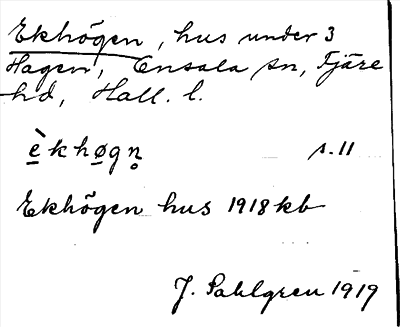 Ekhögen, hus under 3
Hagen, Onsala sn, Fjäre
hd, Hall. l.
è̱khø̱gn̥ s. 11
Ekhögen hus 1918 kb
J. Sahlgren 1919